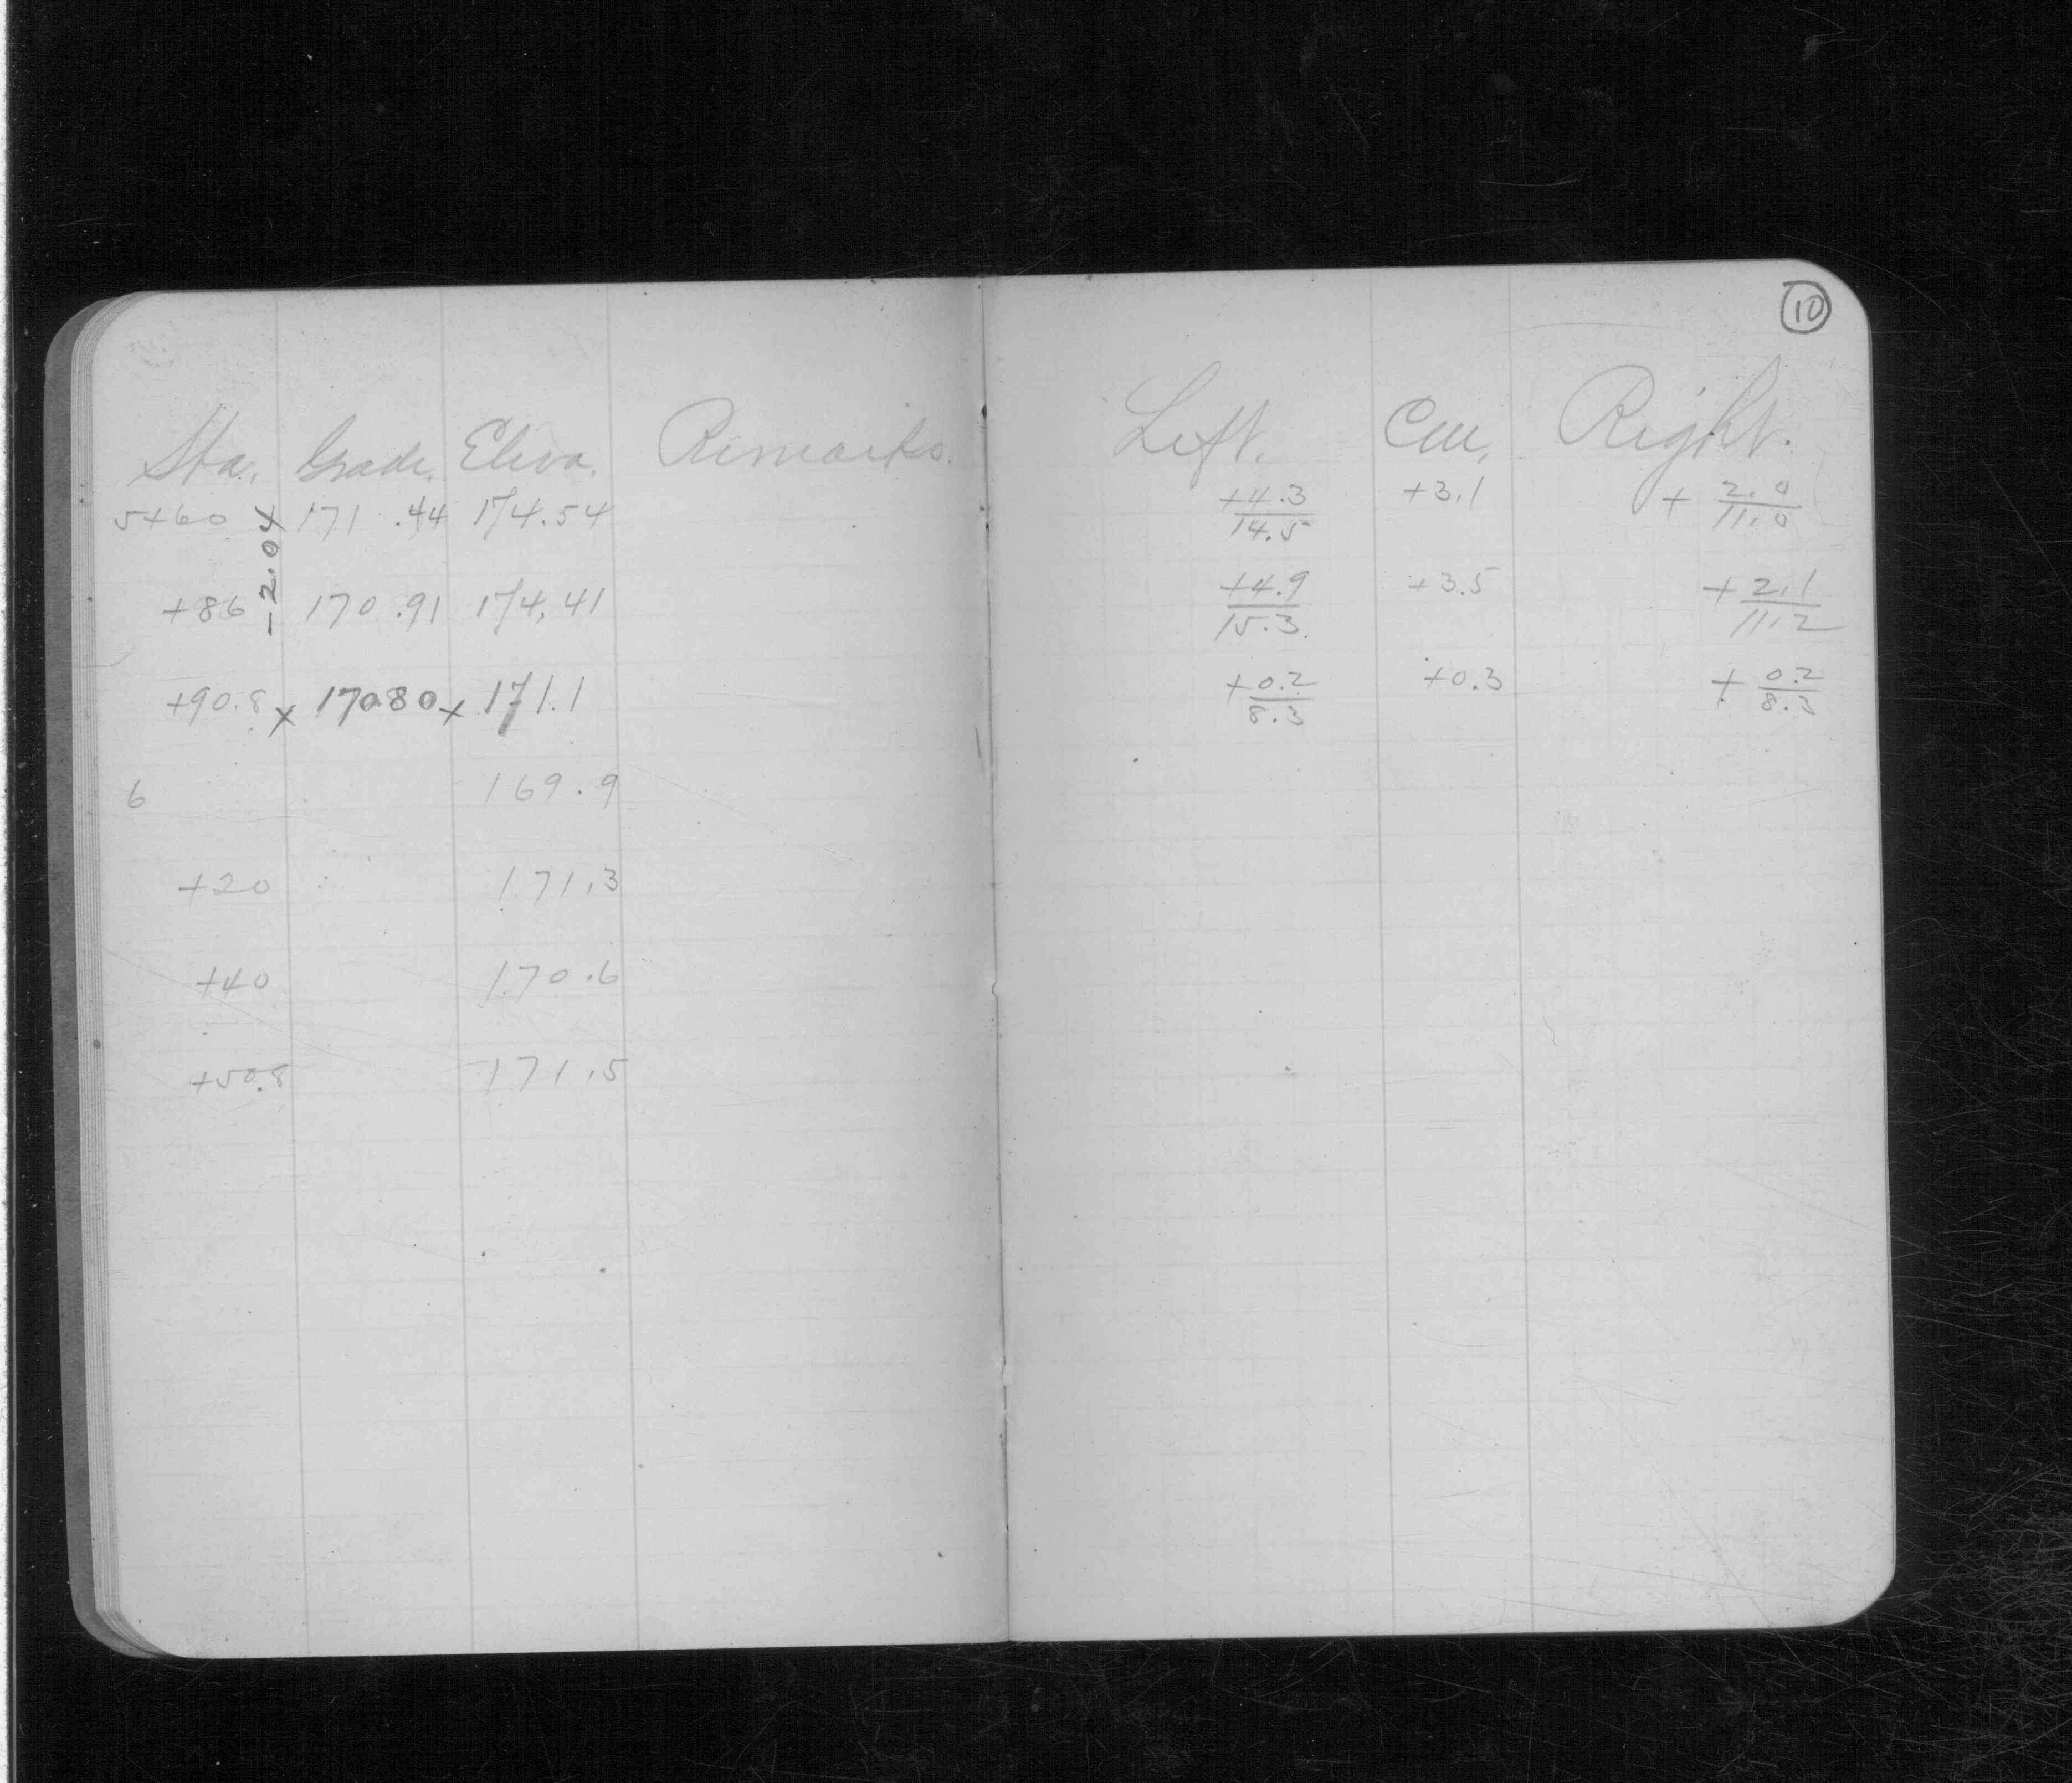 10
Sta. Grade. Eleva. Remarks. Left. Cen. Right.
5+60 x 171.44 174.54 +4.3/14.5 +3.1 + 2.0/11.0
-2.04
+86 170.91 174.41 +4.9/15.3 +3.5 + 2.1/11.2
+90.8 x 170.80 x 171.1 +0.2/8.3 +0.3 + 0.2/8.3
6 169.9
+20 171.3
+40 170.6
+50.8 171.5